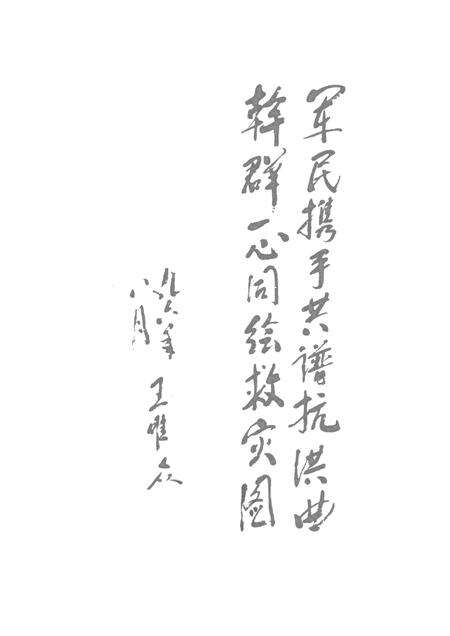 军民携手共谱抗洪曲
幹群一心同绘救灾图
九六年
八月
王唯众